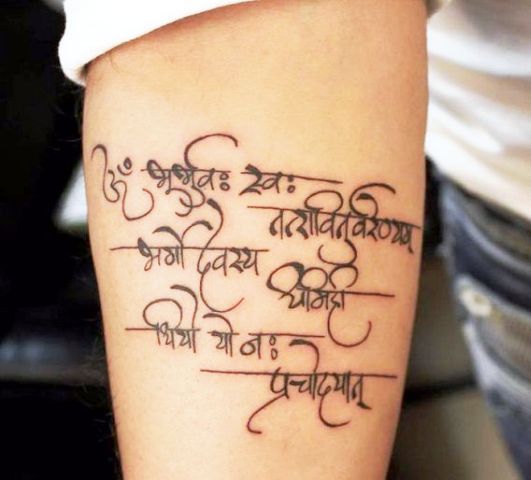 ॐ भूर्भुवः स्वः
तत्सवितुर्वरेण्यम्
भर्गो देवस्य
धीमही
धियो यो नः
प्रचोदयात्